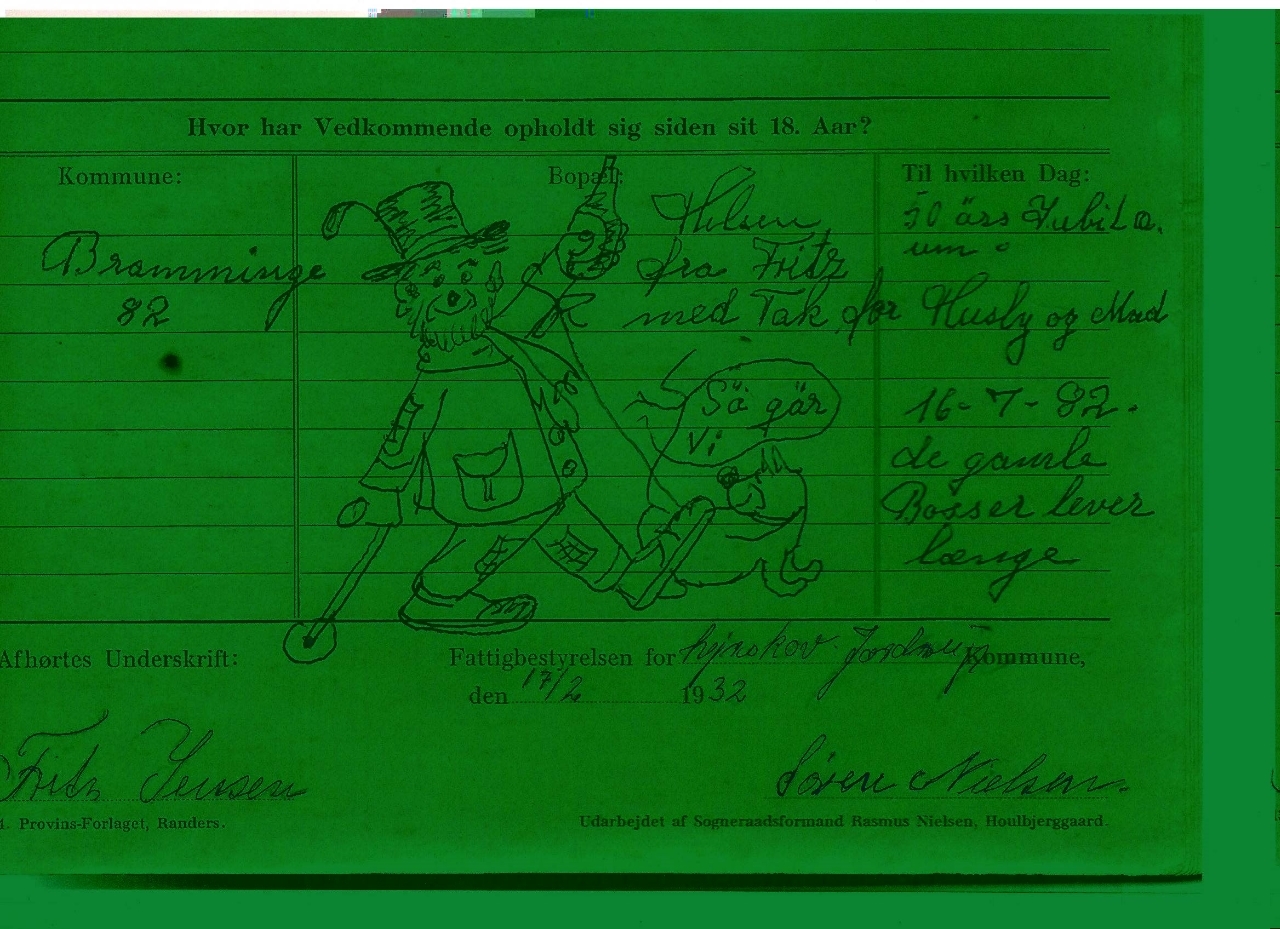 Hvor har Vedkommende opholdt sig siden sit 18. Aar?
Kommune:
Bramminge
82
Bopæl:
Hilsen
fra Fritz
med Tak for Husly og Mad
Så går
Vi
Til hvilken Dag:
50 års Jubilæ.
um
16-7-82.
de gamle
Bosser lever
længe
Afhørtes Underskrift:
Fattigbestyrelsen for Jordrup Kommune,
den 17/2 1932
Fritz Jensen
Søren Nielsen
Provins-Forlaget, Randers.
Udarbejdet af Sogneraadsformand Rasmus Nielsen, Houlbjerggaard.